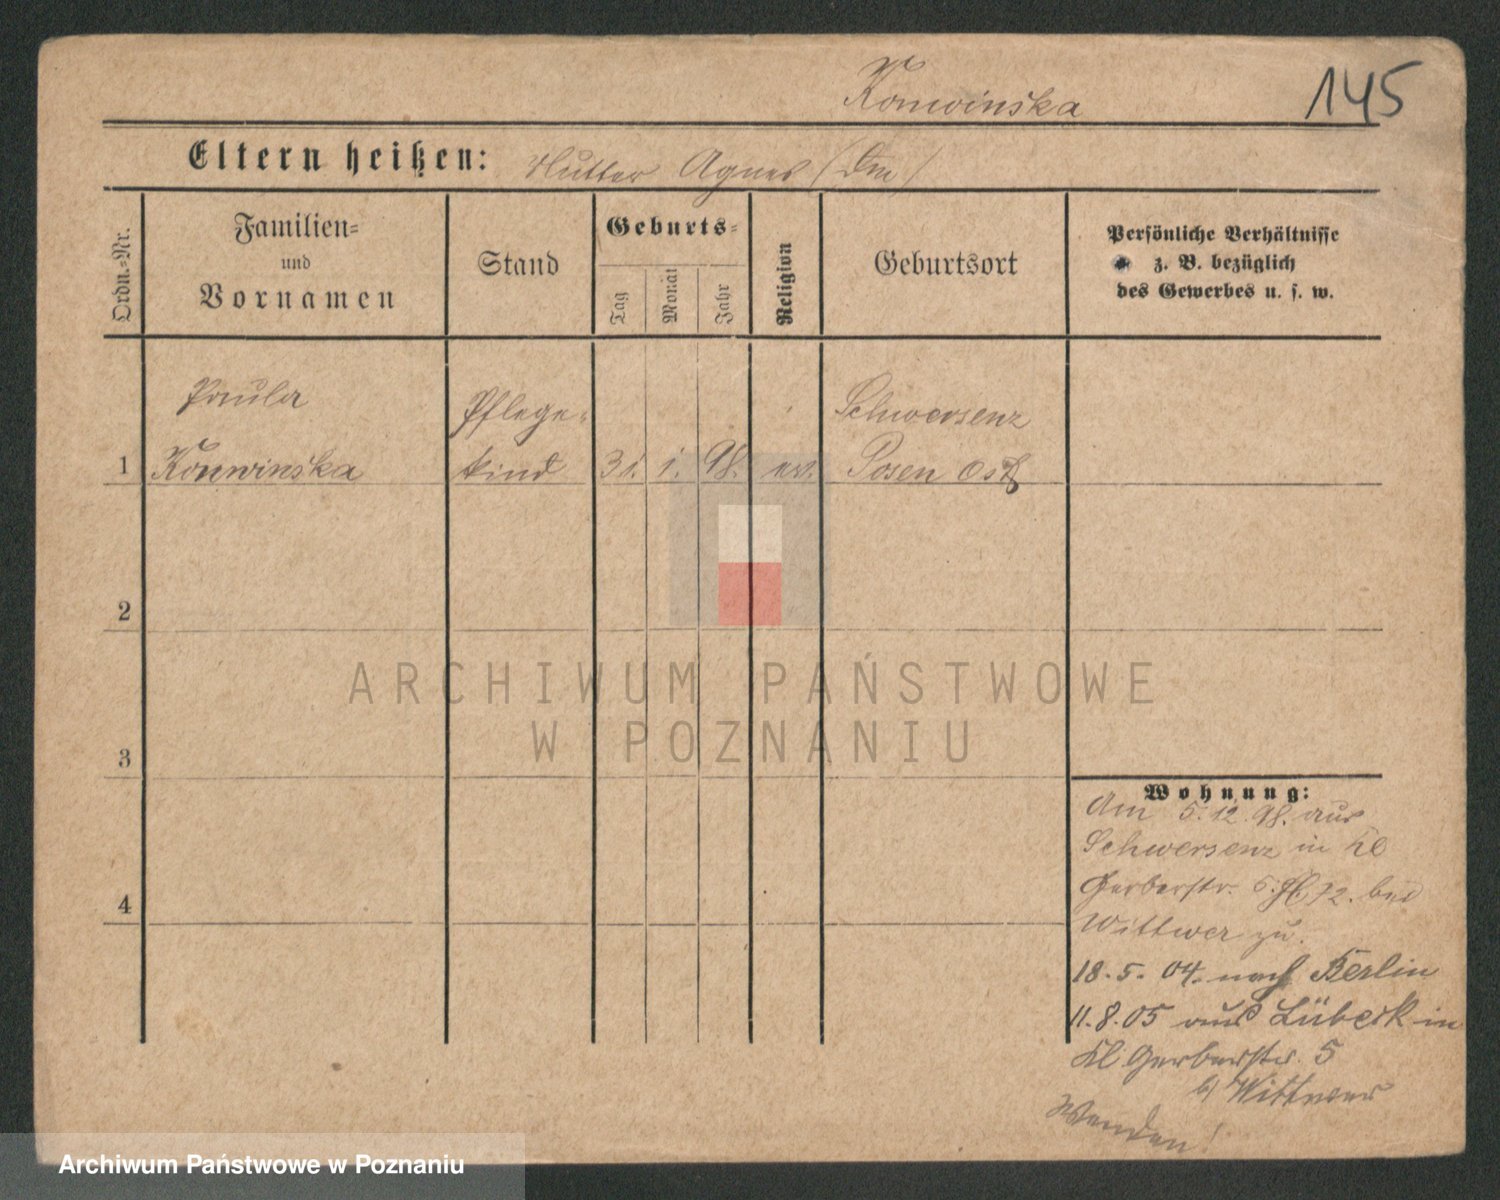 Konwinska
145
Eltern heißen: Mutter Agnes (Dm)
Ordn.-Nr.
Familien-
und
Vornamen
Stand
Geburts-
Tag
Monat
Jahr
Religion
Geburtsort
Persönliche Verhältnisse
z. B. bezüglich
des Gewerbes u. s. w.
Paula
Pflege-
Schwersenz
1 Konwinska kind 31. 1. 98. ev. Posen Ost
2
3
4
Wohnung:
Am 5.12.98. aus
Schwersenz in Kl
Gerberstr. 5. 12. bei
Wittwer zu.
18.5.04. nach Berlin
11.8.05 aus Lübeck in
Kl Gerberstr. 5
b/ Wittwer
Wenden!
ARCHIWUM PAŃSTWOWE
W POZNANIU
Archiwum Państwowe w Poznaniu